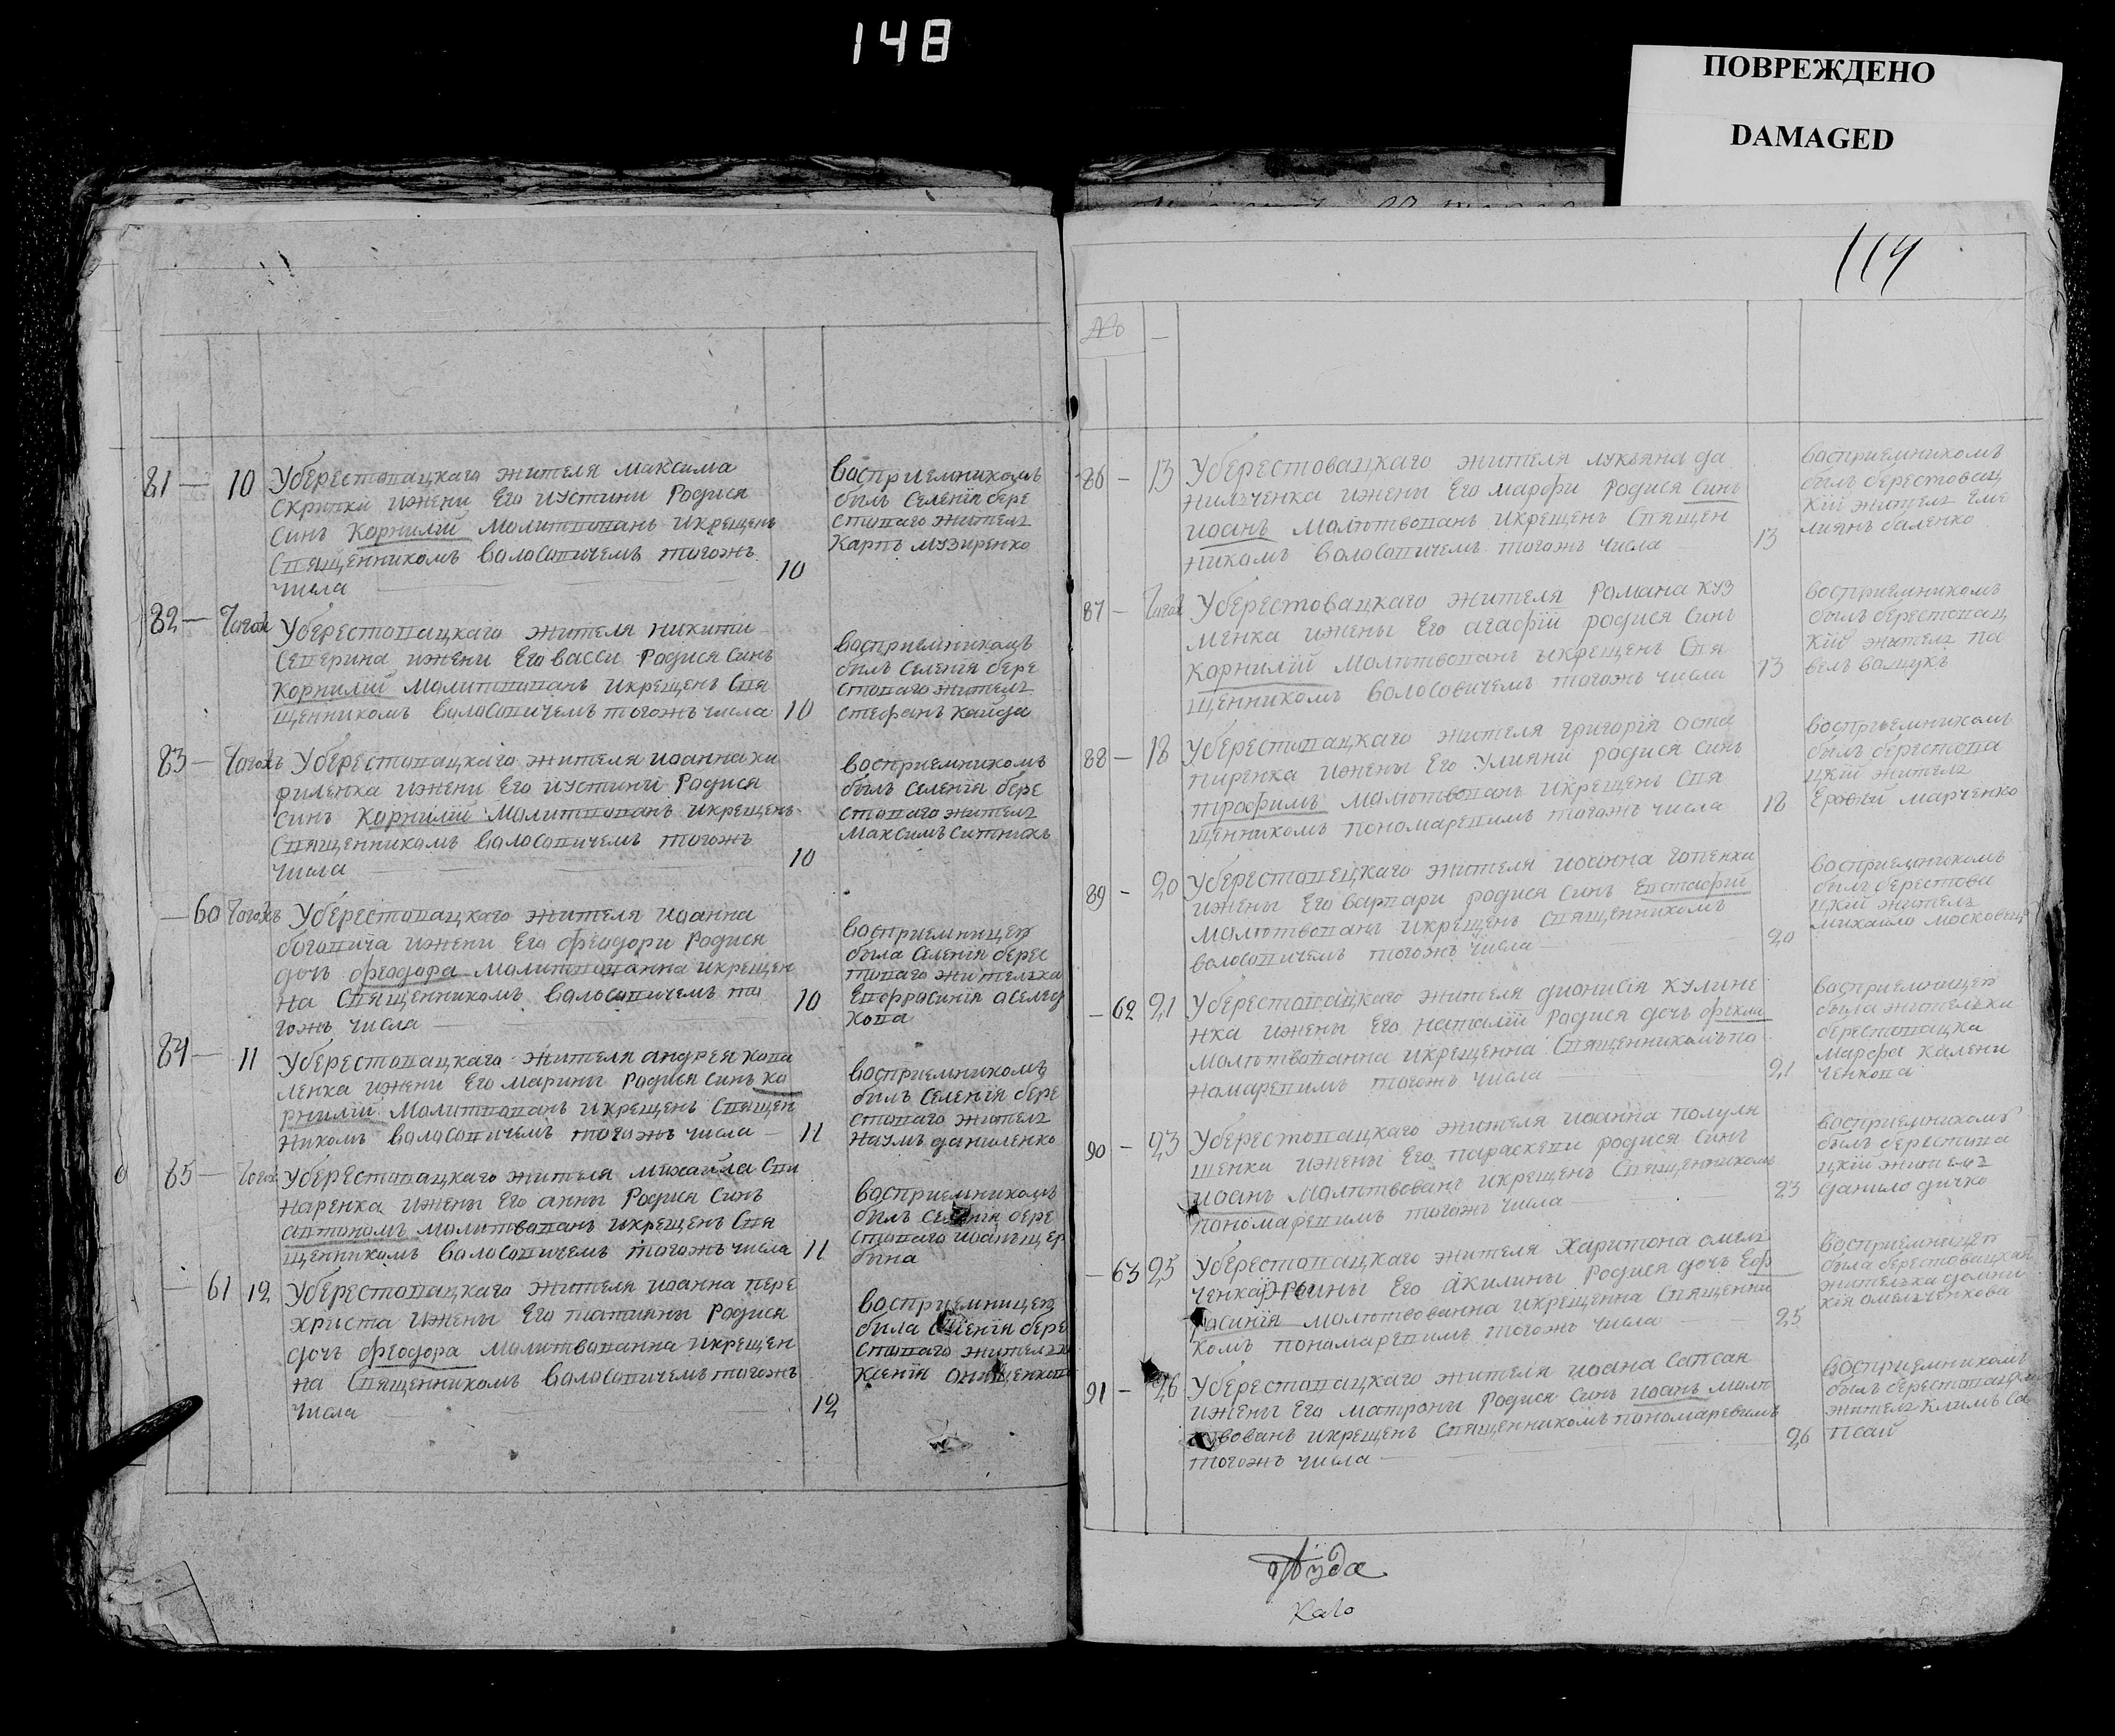 148
ПОВРЕЖДЕНО
DAMAGED
81 — 10 Уберестовацкаго жителя максима
скрипки ижени Его иустини Родися
синъ Корнилій Малитвованъ икрещенъ
Священникомъ Волосовичемъ тогожъ
числа 10
Восприемникомъ
былъ селенія бере
стоваго жителъ
Карпъ музиренко
82 — тогож Уберестовацкаго жителя никити
Северина ижени Его васси Родися Синъ
Корнилій Малитвованъ икрещенъ Свя
щенникомъ Волосовичемъ тогожъ числа 10
восприемникомъ
былъ селенія бере
стоваго жителъ
стефанъ кайда
83 — тогожъ Уберестовацкаго жителя иоанна ки
риленка ижени Его иустини Родися
синъ Корнилій Малитвованъ икрещенъ
Священникомъ Волосовичемъ тогожъ
числа 10
восприемникомъ
былъ селенія бере
стоваго жителъ
Максимъ Ситникъ
— 60 тогожъ Уберестовацкаго жителя иоанна
боговича ижени Его феодори Родися
дочъ феодора Малитвованна икрещен
на Священникомъ Волосовичемъ то
гожъ числа 10
восприемницею
была селенія берес
товаго жителъка
Евфрасинія оселед
кова
84 — 11 Уберестовацкаго жителя андрея кова
ленка ижени Его марины Родися Синъ ко
рнилій Малитвованъ икрещенъ Священ
никомъ Волосовичемъ тогожъ числа 11
восприемникомъ
былъ селенія бере
стоваго жителъ
наумъ даниленко
85 — тогож Уберестовацкаго жителя михаила Сви
наренка ижены Его анны Родися Синъ
автономъ малитвованъ икрещенъ Свя
щенникомъ Волосовичемъ тогожъ числа 11
восприемникомъ
былъ селенія бере
стоваго иоанъ щер
бина
— 61 12 Уберестовацкаго жителя иоанна пере
христа ижены Его татияны Родися
дочъ феодора малитвованна икрещен
на Священникомъ Волосовичемъ тогожъ
числа 12
восприемницею
была селенія бере
стоваго жителъка
Ксенія онищенкова
114
№
86 — 13 Уберестовацкаго жителя лукъяна да
нилъченка ижены Его марфи родися синъ
иоанъ малитвованъ икрещенъ Священ
никомъ Волосовичемъ тогожъ числа 13
восприемникомъ
былъ берестовац
кій жителъ Еме
лиянъ баленко
87 — тогож Уберестовацкаго жителя Романа куз
менка ижены Его агафій родися Синъ
Корнилій малитвованъ икрещенъ Свя
щенникомъ Волосовичемъ тогожъ числа 13
восприемникомъ
былъ берестовац
кій жителъ па
велъ ващукъ
88 — 18 Уберестовацкаго жителя григорія оста
пиренка ижены Его Улияни родися синъ
трофимъ малитвованъ икрещенъ Свя
щенникомъ пономаревимъ тогожъ числа 18
восприемникомъ
былъ берестова
цкій жителъ
Ерофей марченко
89 — 20 Уберестовецкаго жителя иоанна
ижены Его варвари родися синъ Евстафій
малитвованъ икрещенъ Священникомъ
волосовичемъ тогожъ числа 20
восприемникомъ
былъ берестова
цкій жителъ
михайло московец
— 62 21 Уберестовацкаго жителя дионисія кулине
нка ижены Его наталій Родися дочъ фекли
малитвованна икрещенна Священникомъ по
номаревимъ тогожъ числа 21
восприемницею
была жителъка
берестовацка
марфа калени
ченкова
90 — 23 Уберестовацкаго жителя иоанна полуля
шенка ижены Его параскеви родися синъ
иоанъ малитвованъ икрещенъ Священникомъ
пономаревимъ тогожъ числа 23
восприемникомъ
былъ берестова
цкій жителъ
данило дичко
— 63 25 Уберестовацкаго жителя Харитона омелъ
ченка ижены Его акилины Родися дочъ Евф
расинія малитвованна икрещенна Священни
комъ пономаревимъ тогожъ числа 25
восприемницею
была берестовацкая
жителъка домни
кія омелъченкова
91 — 26 Уберестовацкаго жителя иоана Сапсая
ижены Его матроны Родися Синъ иоанъ мали
твованъ икрещенъ Священникомъ пономаревимъ
тогожъ числа 26
восприемникомъ
былъ берестовацкій
жителъ климъ Са
псай